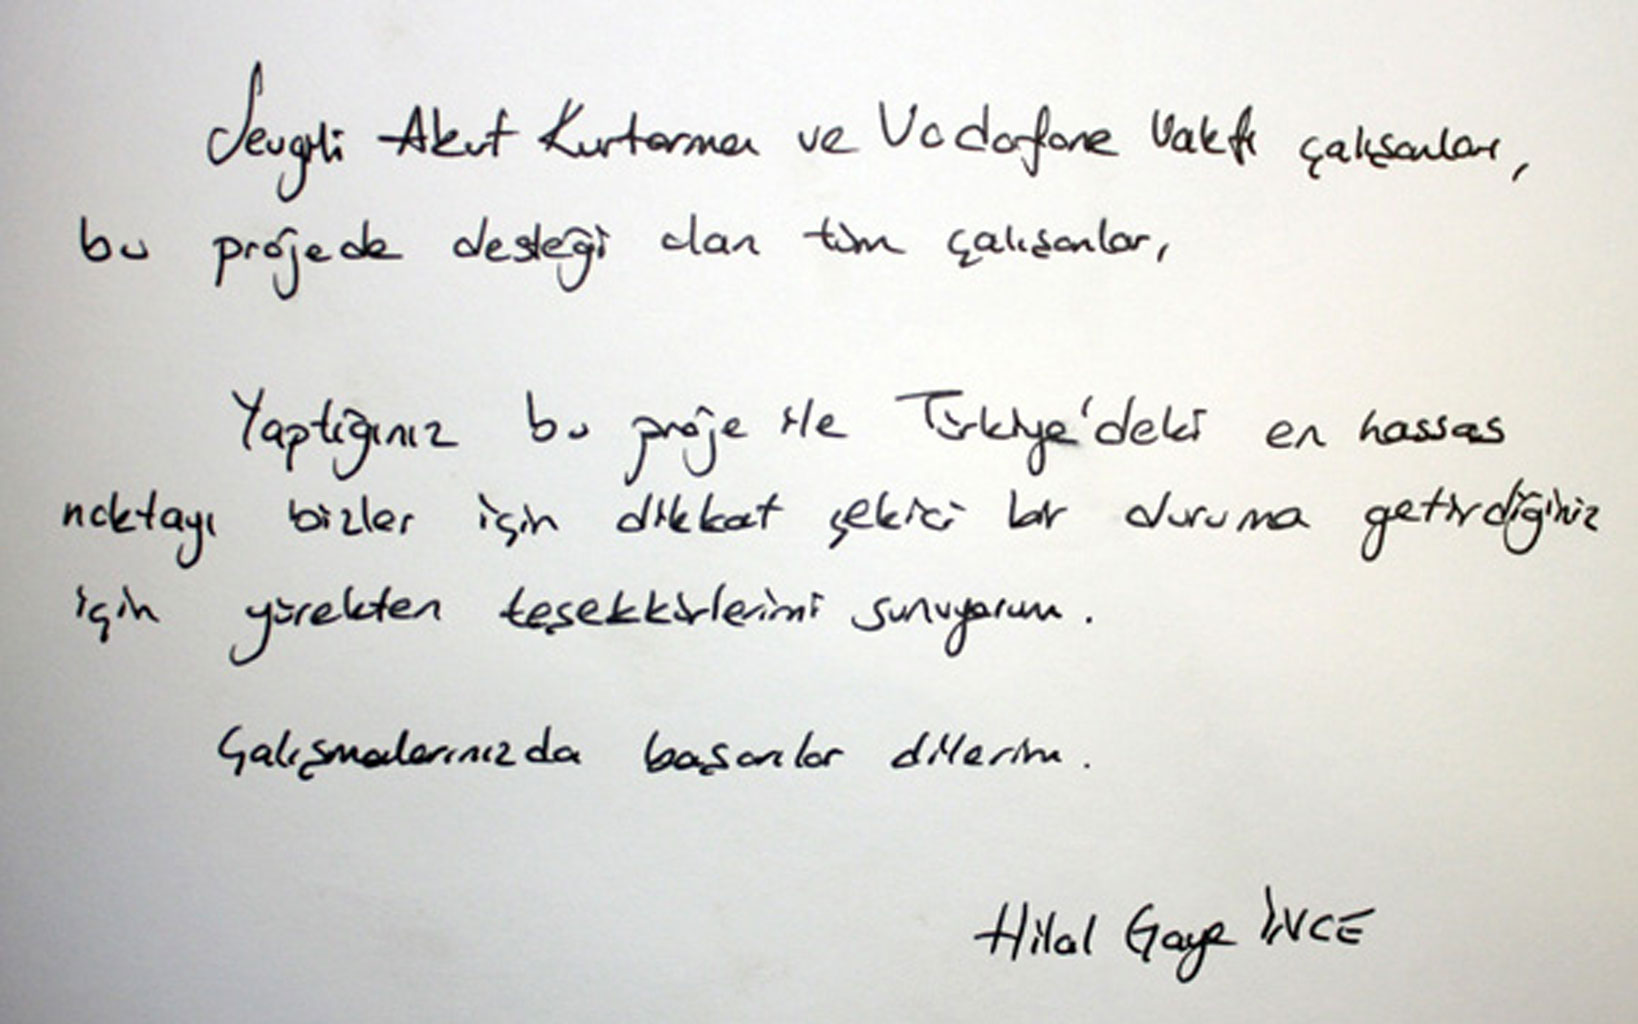 Sevgili Akut Kurtarma ve Vodafone Vakfı çalışanları,
bu projede desteği olan tüm çalışanlar,
Yaptığınız bu proje ile Türkiye'deki en hassas
noktayı bizler için dikkat çekici bir duruma getirdiğiniz
için yürekten teşekkürlerimi sunuyorum.
Çalışmalarınızda başarılar dilerim.
Hilal Gaye İNCE